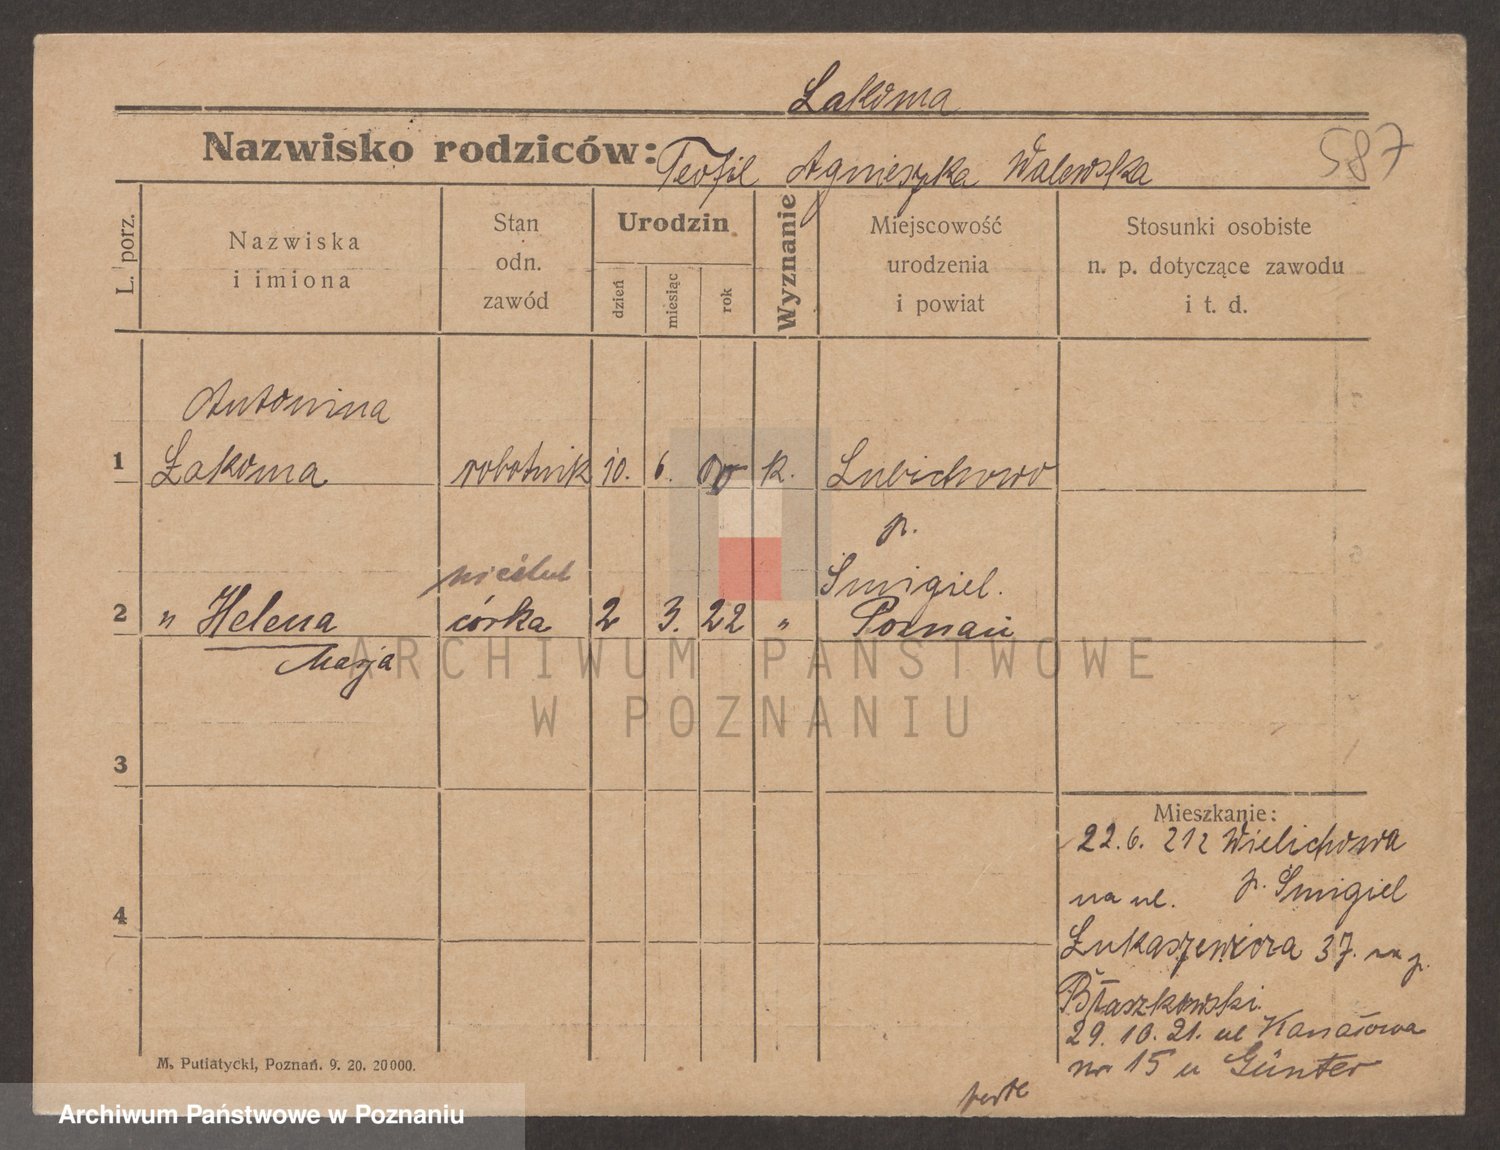 Łakoma
Nazwisko rodziców: Teofil Agnieszka Walewska
587
L. porz.
Nazwiska
i imiona
Stan
odn.
zawód
Urodzin
dzień
miesiąc
rok
Wyznanie
Miejscowość
urodzenia
i powiat
Stosunki osobiste
n. p. dotyczące zawodu
i t. d.
Antonina
1 Łakoma robotnik 10. 6. 00 k. Lubichowo
p.
Śmigiel.
nieślub
2 " Helena córka 2 3. 22 " Poznań
Marja
3
4
Mieszkanie:
22. 6. 21 z Wielichowa
na ul. p. Śmigiel
Łukaszewicza 37.
Błaszkowski.
29. 10. 21. ul Kanałowa
nr 15 u Günter
M. Putiatycki, Poznań. 9. 20. 20000.
ARCHIWUM PAŃSTWOWE
W POZNANIU
Archiwum Państwowe w Poznaniu